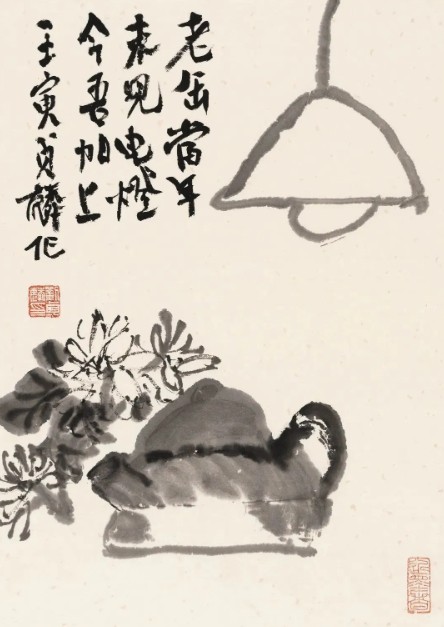 老缶當年
未見电燈
今吾加上
壬寅貞麟作